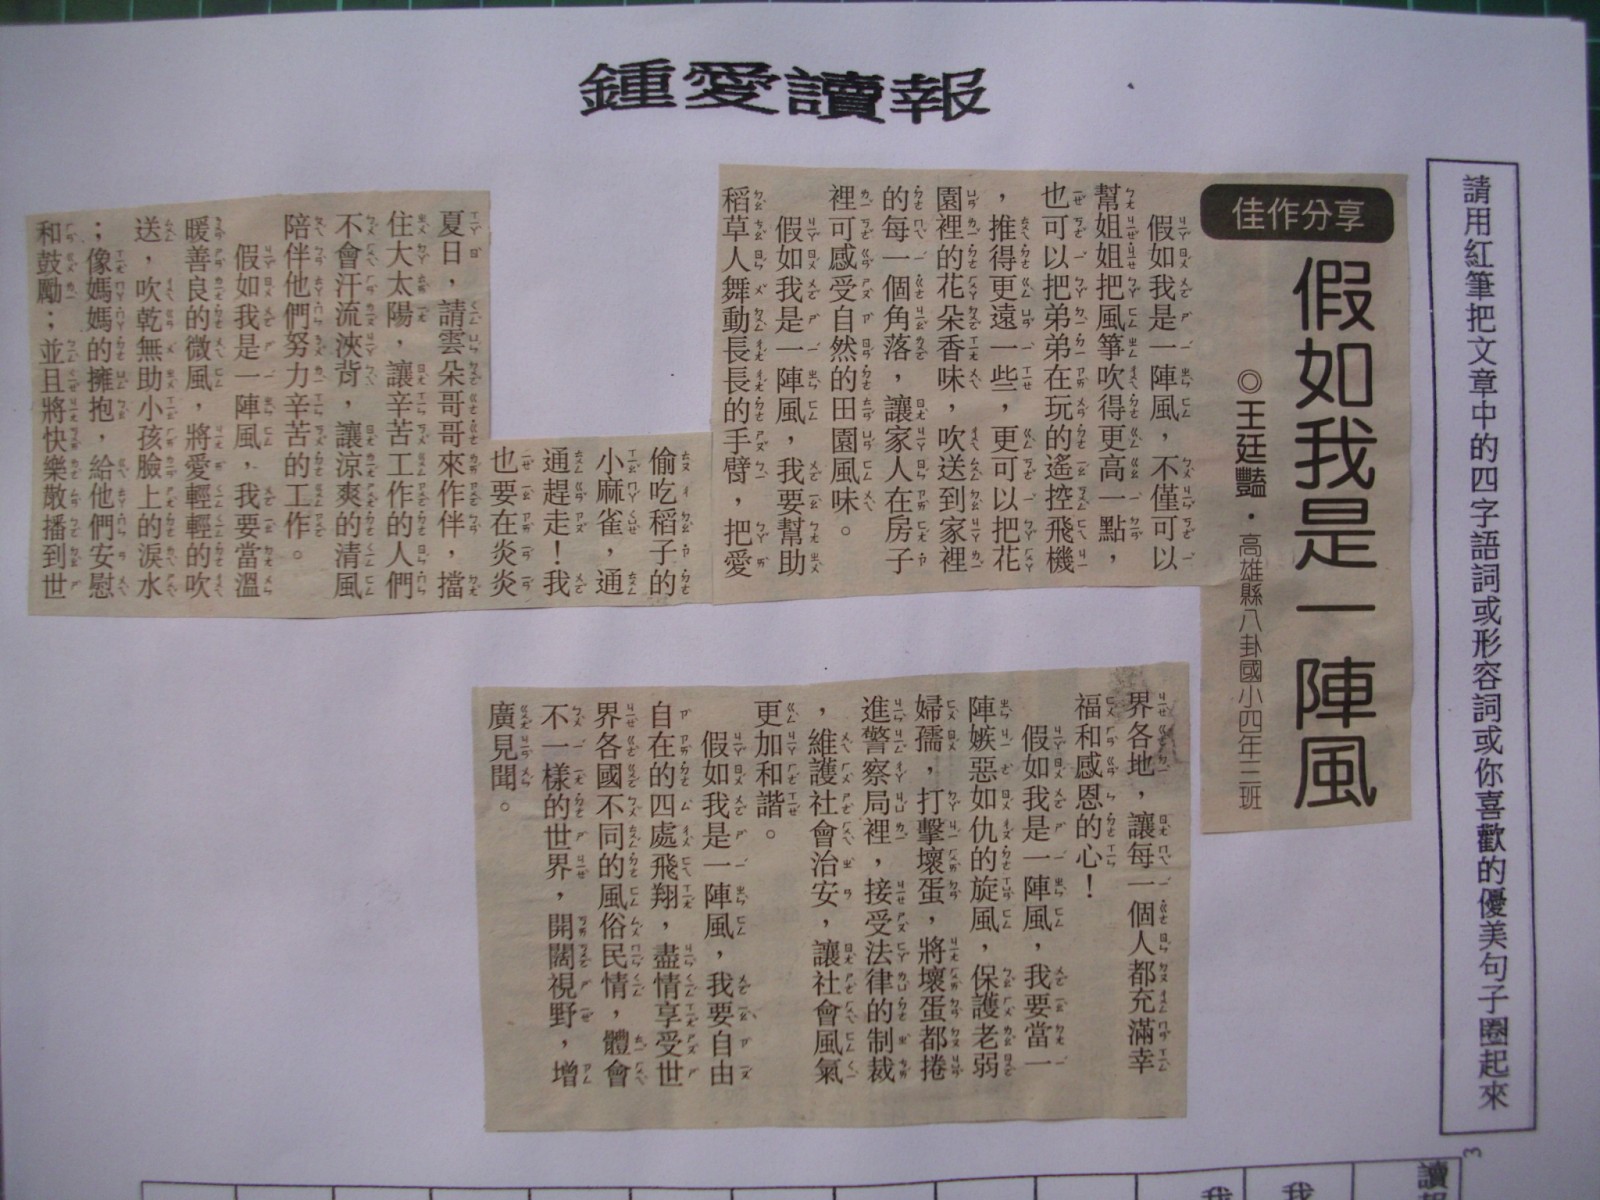 鍾愛讀報
請用紅筆把文章中的四字語詞或形容詞或你喜歡的優美句子圈起來
佳作分享
假如我是一陣風
◎王廷豔．高雄縣八卦國小四年三班
假如我是一陣風，不僅可以
幫姐姐把風箏吹得更高一點，
也可以把弟弟在玩的遙控飛機
，推得更遠一些，更可以把花
園裡的花朵香味，吹送到家裡
的每一個角落，讓家人在房子
裡可感受自然的田園風味。
假如我是一陣風，我要幫助
稻草人舞動長長的手臂，把愛
偷吃稻子的
小麻雀，通
通趕走！我
也要在炎炎
夏日，請雲朵哥哥來作伴，擋
住大太陽，讓辛苦工作的人們
不會汗流浹背，讓涼爽的清風
陪伴他們努力辛苦的工作。
假如我是一陣風，我要當溫
暖善良的微風，將愛輕輕的吹
送，吹乾無助小孩臉上的淚水
；像媽媽的擁抱，給他們安慰
和鼓勵；並且將快樂散播到世
界各地，讓每一個人都充滿幸
福和感恩的心！
假如我是一陣風，我要當一
陣嫉惡如仇的旋風，保護老弱
婦孺，打擊壞蛋，將壞蛋都捲
進警察局裡，接受法律的制裁
，維護社會治安，讓社會風氣
更加和諧。
假如我是一陣風，我要自由
自在的四處飛翔，盡情享受世
界各國不同的風俗民情，體會
不一樣的世界，開闊視野，增
廣見聞。
3
讀
我
我